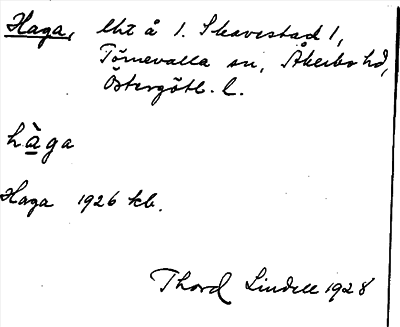 Haga, lht å 1. Skavestad 1,
Törnevalla sn, Åkerbo hd,
Östergötl. l.
hàga
Haga 1926 kb.
Thord Lindell 1928